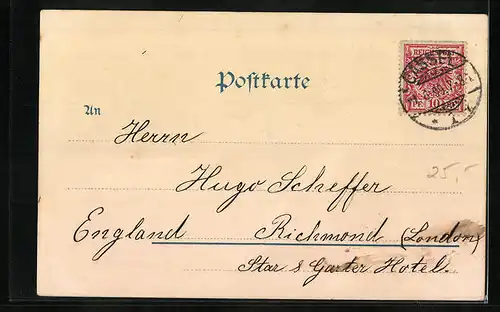 Postkarte
CASSEL
REICHSPOST
PF. 10
1
An
Herrn
Hugo Scheffer
25,-
England Richmond (London)
Star & Garter Hotel.